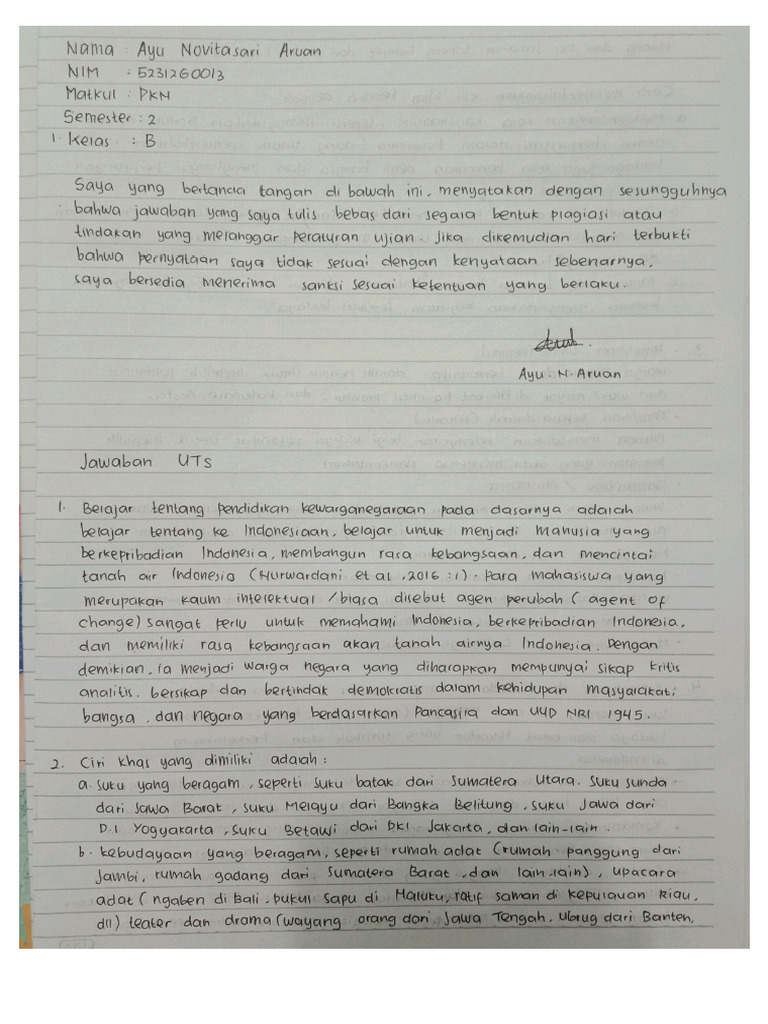 Nama : Ayu Novitasari Aruan
NIM : 5231260013
Matkul : PKN
Semester : 2
1. Kelas : B
Saya yang bertanda tangan di bawah ini, menyatakan dengan sesungguhnya
bahwa jawaban yang saya tulis bebas dari segala bentuk plagiasi atau
tindakan yang melanggar peraturan ujian. Jika dikemudian hari terbukti
bahwa pernyataan saya tidak sesuai dengan kenyataan sebenarnya,
saya bersedia menerima sanksi sesuai ketentuan yang berlaku.
Ayu . N. Aruan
Jawaban UTS
1. Belajar tentang pendidikan kewarganegaraan pada dasarnya adalah
belajar tentang ke Indonesiaan, belajar untuk menjadi manusia yang
berkepribadian Indonesia, membangun rasa kebangsaan, dan mencintai
tanah air Indonesia (Nurwardani et al, 2016 : 1). Para mahasiswa yang
merupakan kaum intelektual / biasa disebut agen perubah ( agent of
change) sangat perlu untuk memahami Indonesia, berkepribadian Indonesia,
dan memiliki rasa kebangsaan akan tanah airnya Indonesia. Dengan
demikian, ia menjadi warga negara yang diharapkan mempunyai sikap kritis
analitis, bersikap dan bertindak demokratis dalam kehidupan masyarakat,
bangsa, dan negara yang berdasarkan Pancasila dan UUD NRI 1945.
2. Ciri khas yang dimiliki adalah :
a. Suku yang beragam, seperti suku batak dari Sumatera Utara. Suku sunda
dari Jawa Barat, suku Melayu dari Bangka Belitung, suku Jawa dari
D.I Yogyakarta, suku Betawi dari DKI Jakarta, dan lain-lain.
b. kebudayaan yang beragam, seperti rumah adat (rumah panggung dari
Jambi, rumah gadang dari Sumatera Barat, dan lain-lain), upacara
adat ( ngaben di Bali, pukul sapu di Maluku, ratif saman di kepulauan Riau,
dll) teater dan drama (wayang orang dari Jawa Tengah, Ubrug dari Banten,